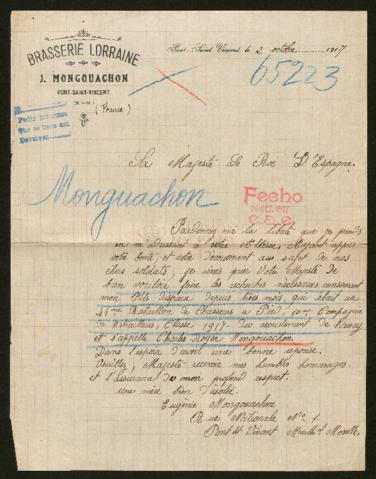 BRASSERIE LORRAINE
J. MONGOUACHON
PONT-SAINT-VINCENT
(France)
Pont-Saint-Vincent, le 2 octobre 1917
65223
Sa Majesté Le Roi D'Espagne
Monguachon
Fecho
Pardonnez moi la liberté que je prends
en m'adressant à votre Altesse, Ayant appris
votre bonté, et votre dévouement au sujet de nos
chers soldats, je viens prier Votre Majesté de
bien vouloir faire les recherches nécessaires concernant
mon Fils disparu depuis trois mois, qui était au
Bataillon de Chasseurs à Pied, Compagnie
de Mitrailleurs, Classe 1917. Du recrutement de
et s'appelle Charles Roger Mongouachon.
Dans l'espoir d'avoir une bonne réponse,
Veuillez, Majesté recevoir mes humbles hommages
et l'assurance de mon profond respect.
une mère bien désolée.
Eugénie Mongouachon
Rue Nationale
Pont St Vincent Meurthe et Moselle